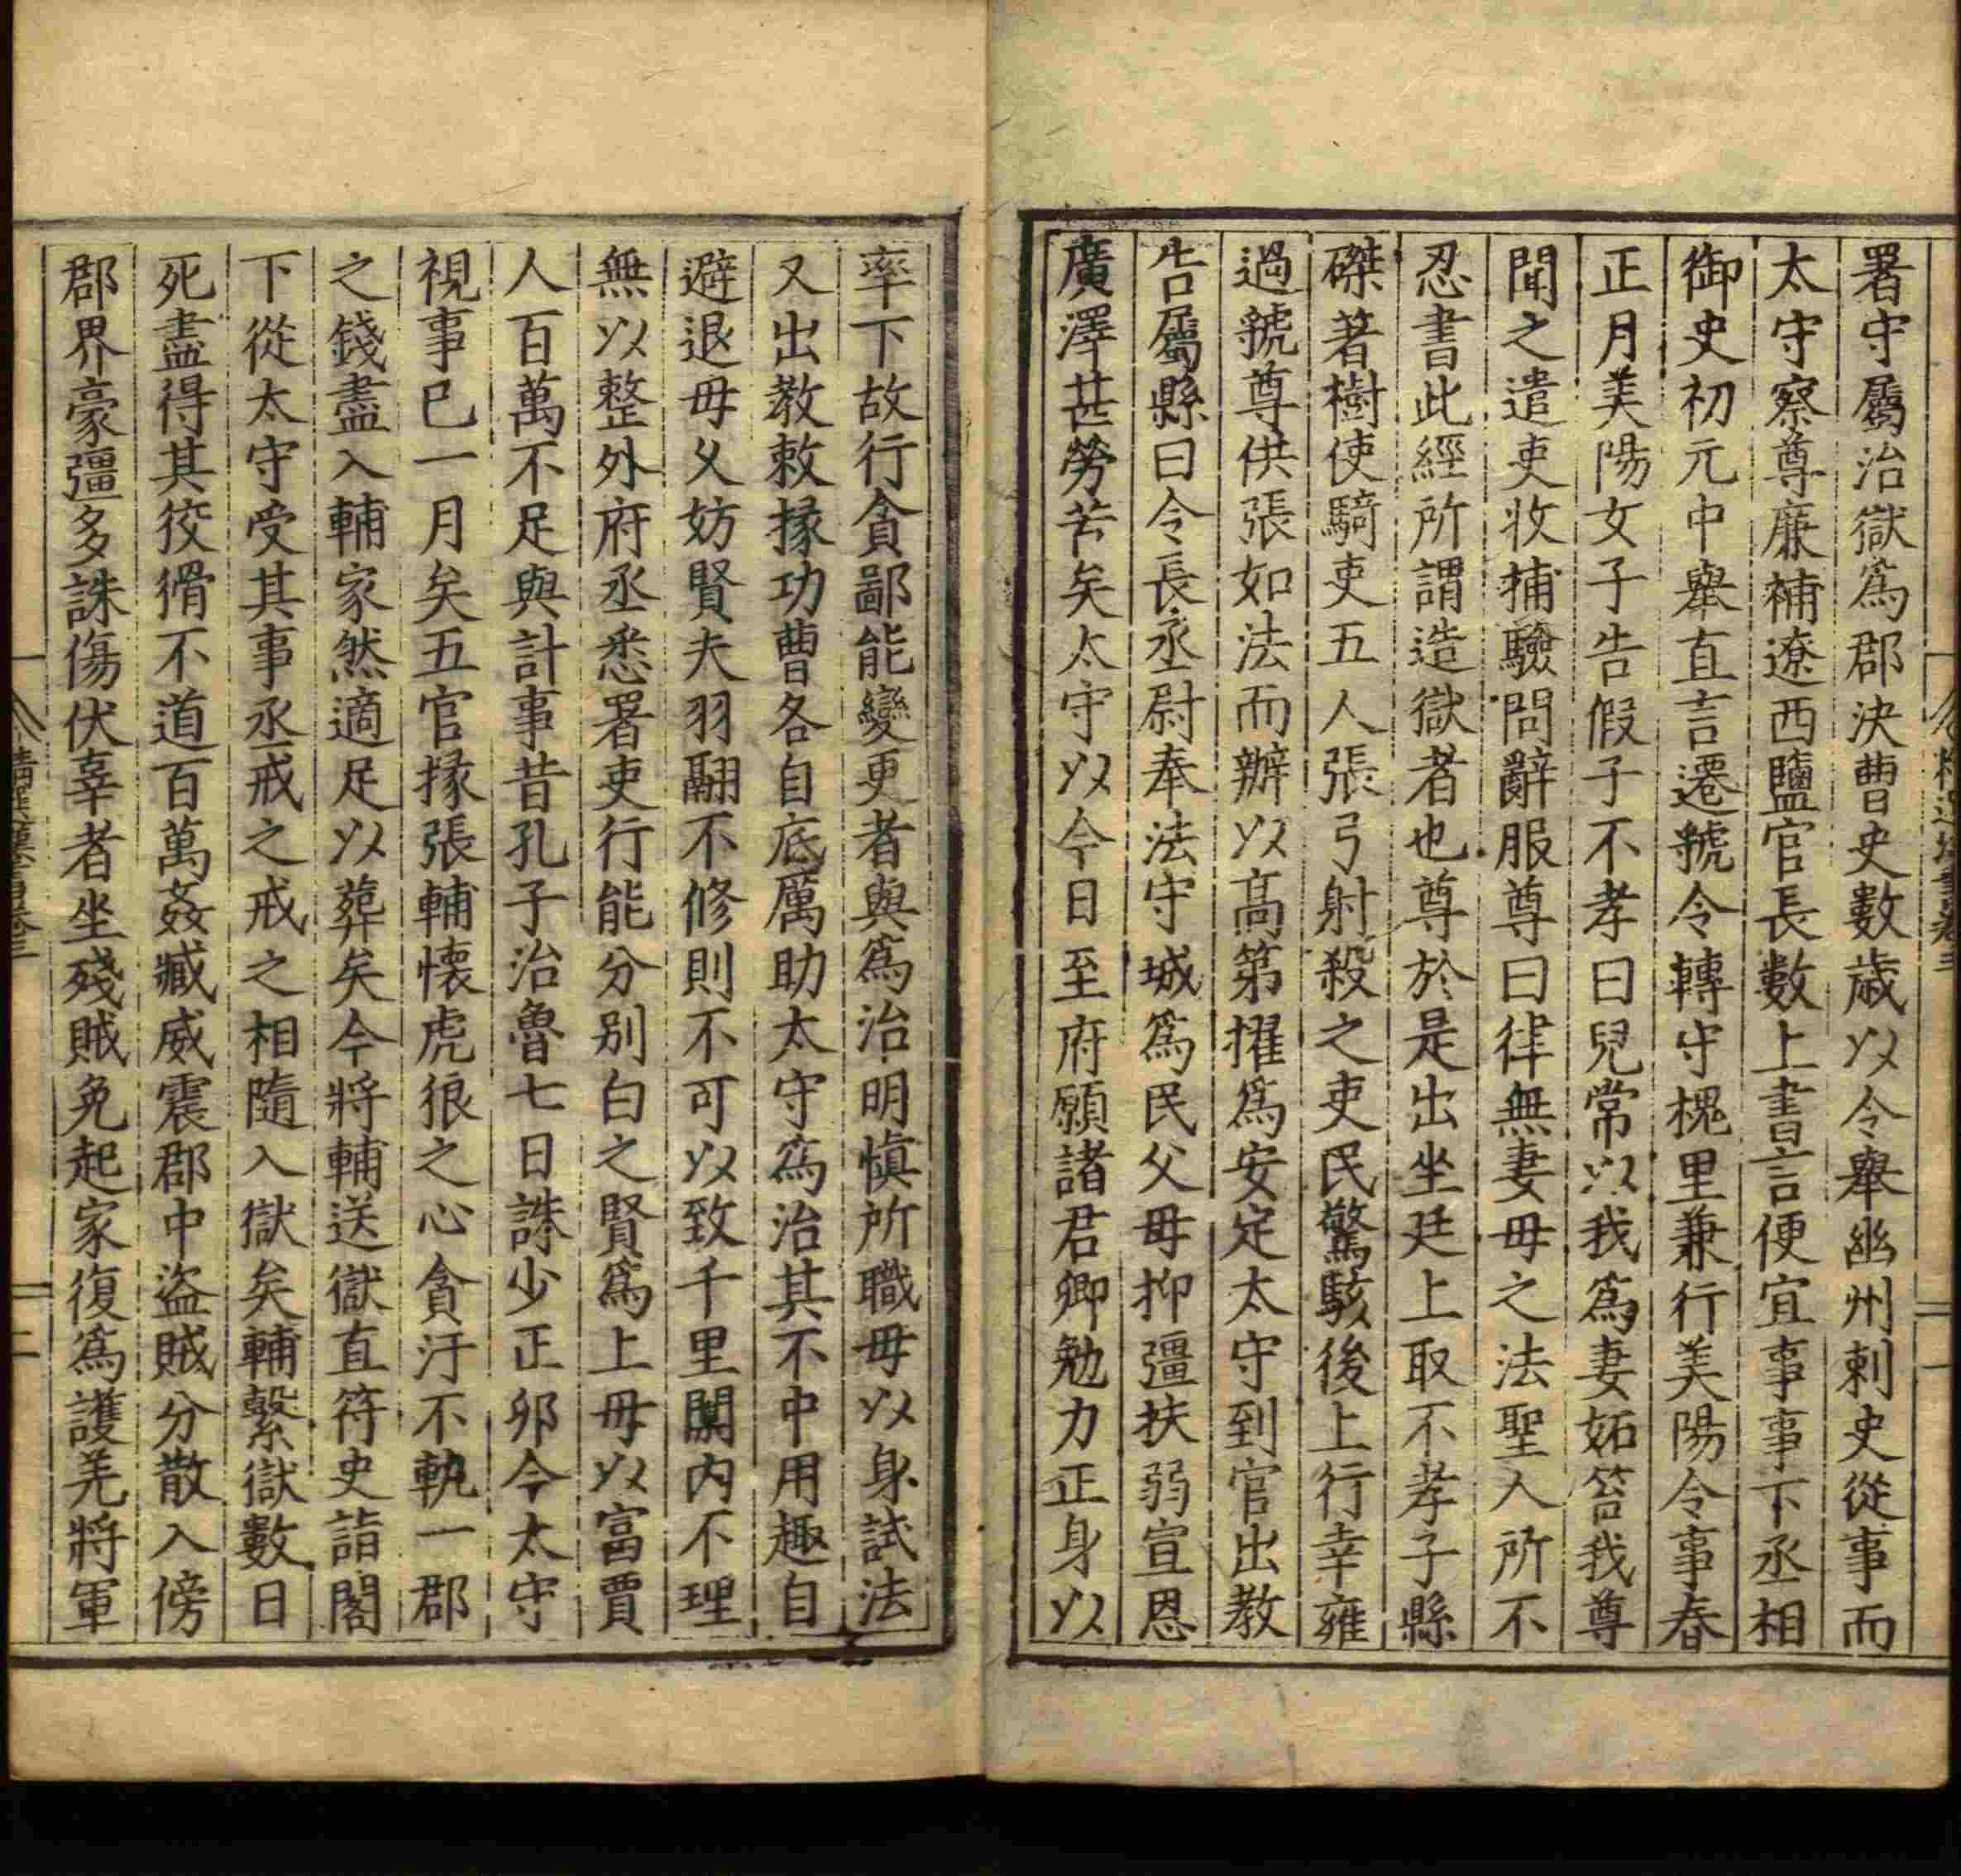 署守屬治獄爲郡決曹史數歳以令舉幽州刺史從事而
太守察尊廉補遼西鹽官長數上書言便宜事事下丞相
御史初元中舉直言遷虢令轉守槐里兼行美陽令事春
正月美陽女子告假子不孝曰兒常以我爲妻妬笞我尊
聞之遣吏收捕驗問辭服尊曰律無妻母之法聖人所不
忍書此經所謂造獄者也尊於是出坐廷上取不孝子縣
磔著樹使騎吏五人張弓射殺之吏民驚駭後上行幸雍
過虢尊供張如法而辦以高第擢爲安定太守到官出教
告屬縣曰令長丞尉奉法守城爲民父毋抑彊扶弱宣恩
廣澤甚勞苦矣太守以今日至府願諸君卿勉力正身以
率下故行貪鄙能變更者與爲治明慎所職毋以身試法
又出教敕掾功曹各自底厲助太守爲治其不中用趣自
避退毋乆妨賢夫羽翮不修則不可以致千里闑内不理
無以整外府丞悉署吏行能分别白之賢爲上毋以富賈
人百萬不足與計事昔孔子治魯七日誅少正卯今太守
視事已一月矣五官掾張輔懷虎狼之心貪汙不軌一郡
之錢盡入輔家然適足以葬矣今將輔送獄直符史詣閣
下從太守受其事丞戒之戒之相隨入獄矣輔繫獄數日
死盡得其狡猾不道百萬姦臧威震郡中盜賊分散入傍
郡界豪彊多誅傷伏辜者坐殘賊免起家復爲護羌將軍